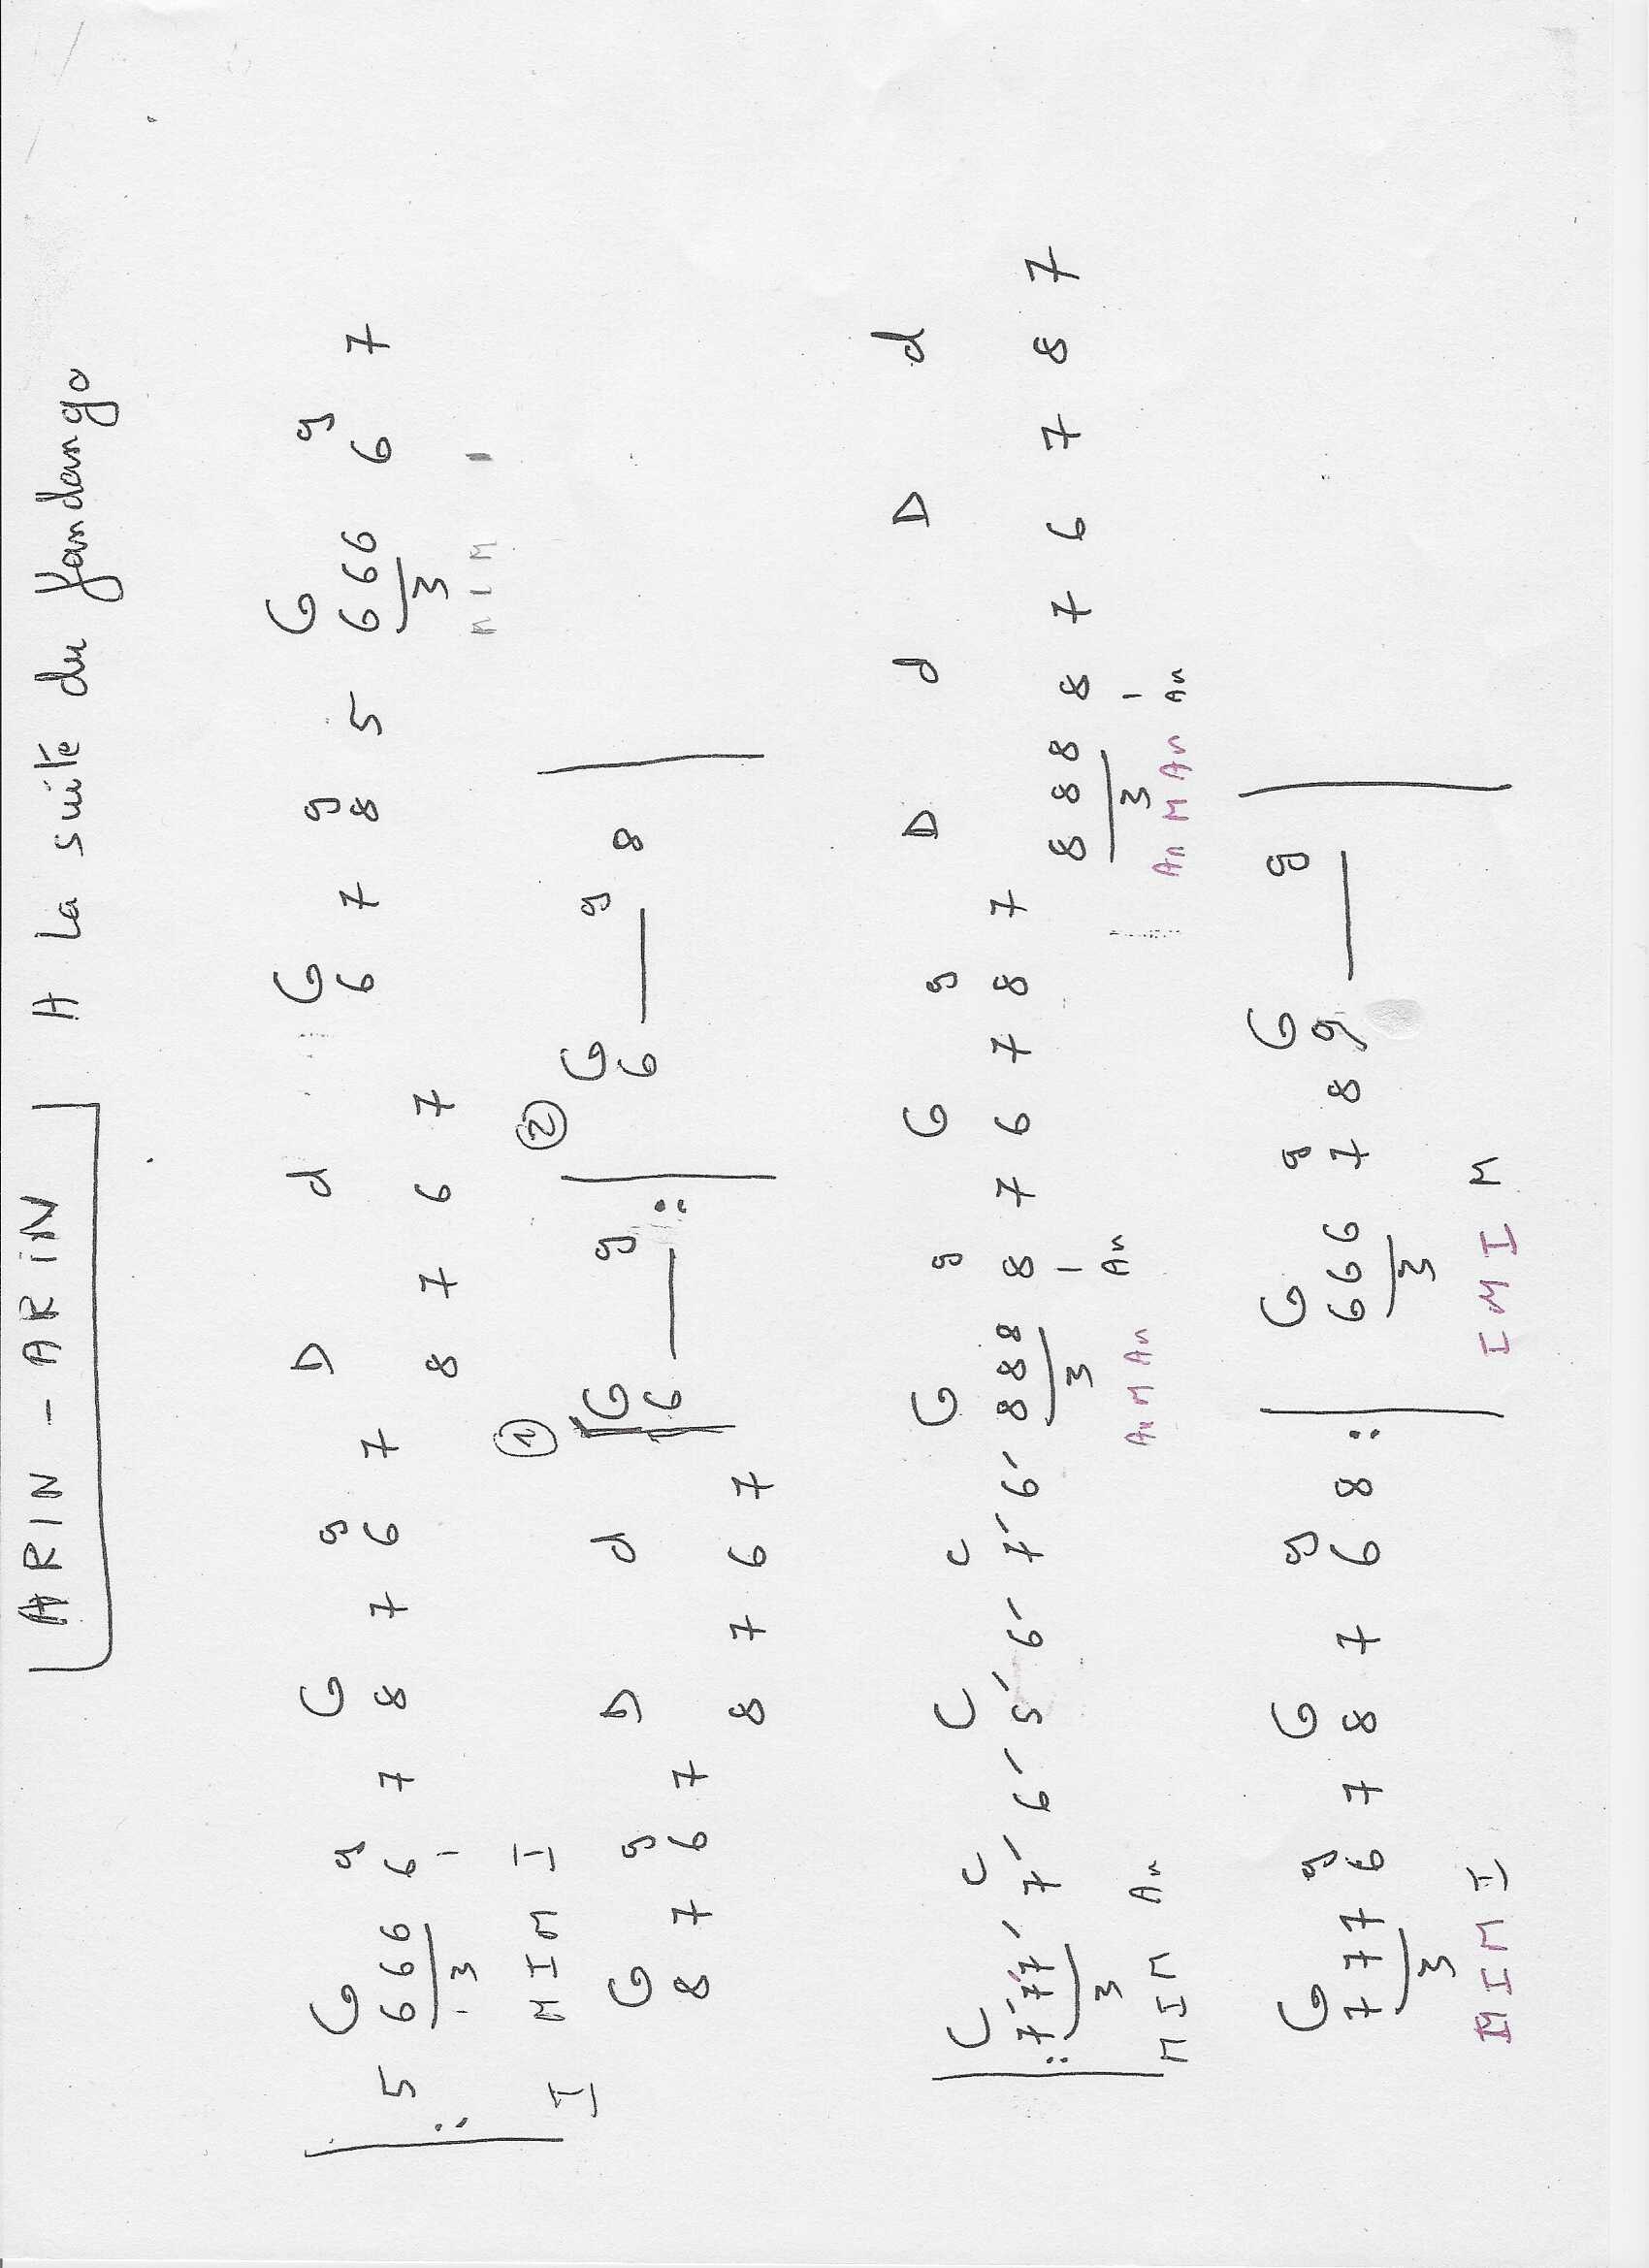 ARIN - ARIN A La suite du fandango
G g G g D d G g G g
5 666 6 7 8 7 6 7 6 7 8 5 666 6 7
8 7 6 7
3 3
I M I M I M I M
① ②
G g D d G g G g
8 7 6 7 6 — 6 — 8
8 7 6 7
C c C c G g G g D d D d
7'7'7' 7' 6' 5' 6' 7' 6' 888 8 7 6 7 8 7
888 8 7 6 7 8 7
3 3 3
M I M An An M An An An M An An
G g G g G g G g
777 6 7 8 7 6 8 666 7 8 9 —
3 3
M I M I I M I M